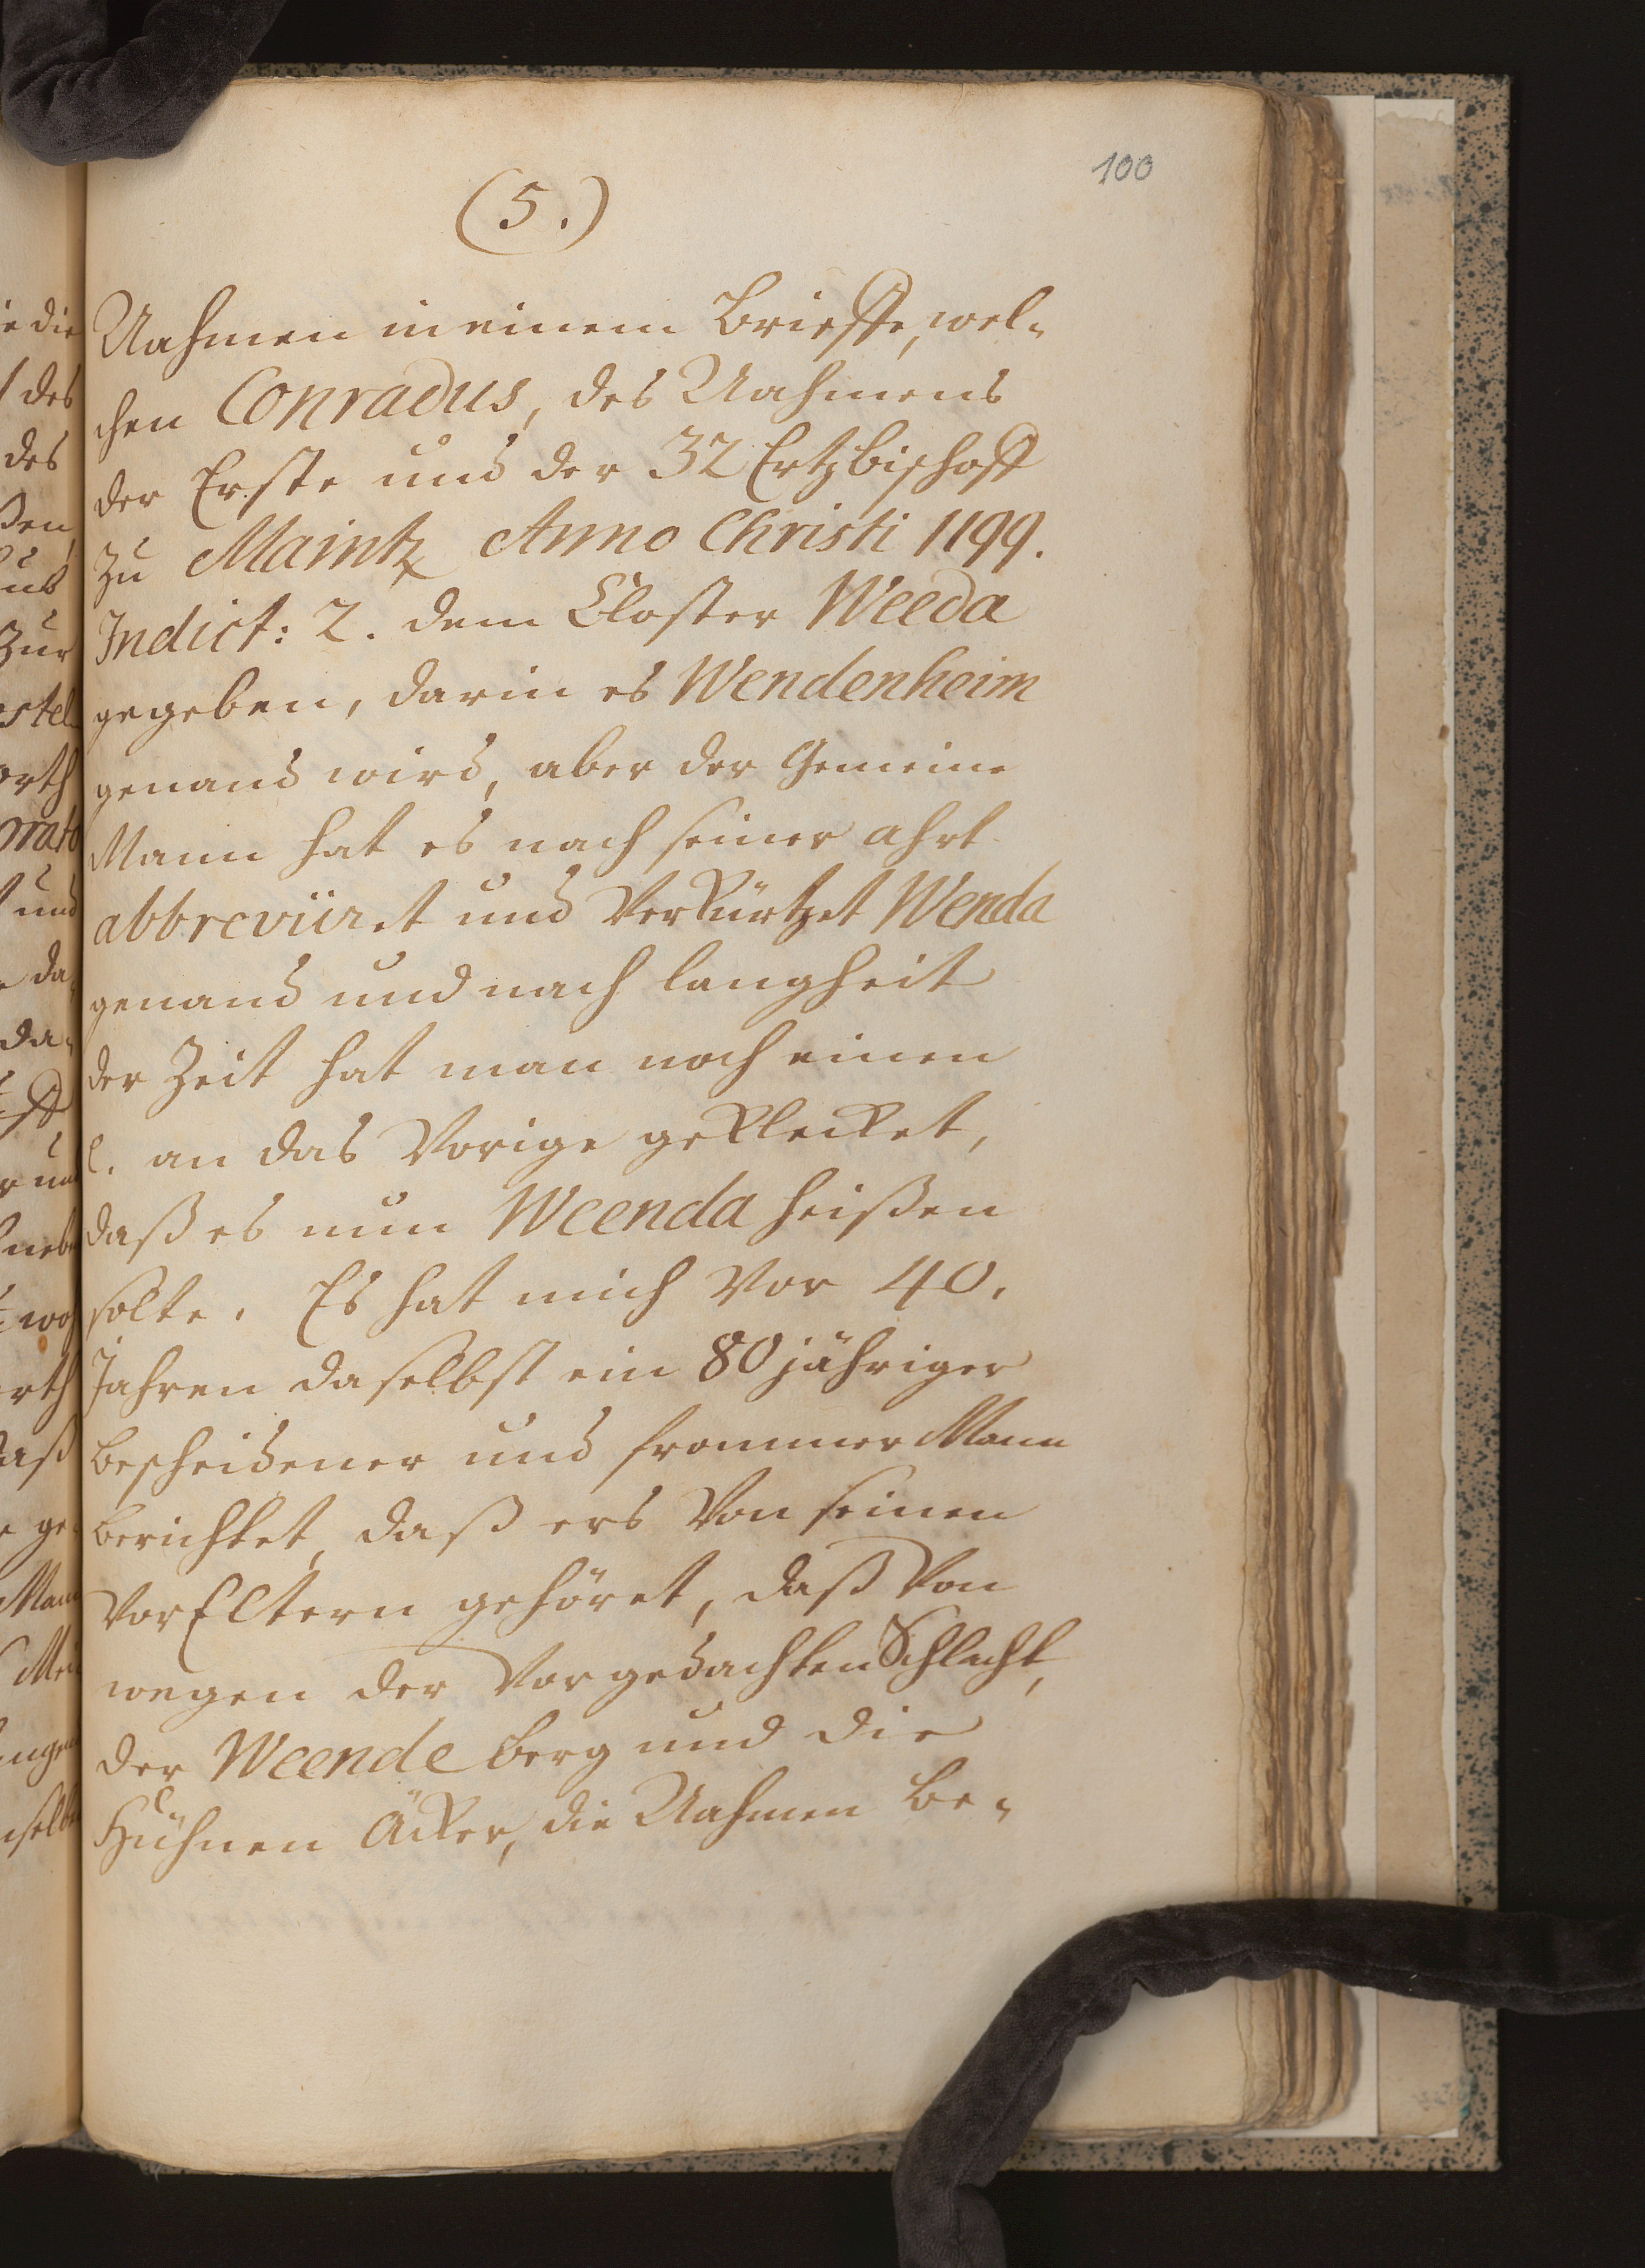 100
(5.)
Nahmen in einem Brieffe, wel-
chen Conradus, des Nahmens
der Erste und der 32 Ertzbischoff
zu Maintz Anno Christi 1199.
Indict: 2. dem Closter Weeda
gegeben, darin es Wendenheim
genand wird, aber der Gemeine
Mann hat es nach seiner ahrt
abbreviiret und verkürtzet Wenda
genand und nach langheit
der Zeit hat man noch einen
e. an das Vorige geklecket,
daß es nun Weenda heißen
solte. Es hat mich vor 40.
Jahren daselbst ein 80 jähriger
bescheidener und frommer Mann
berichtet, daß ers von seinen
VorEltern gehöret, daß von
wegen der vorgedachten Schlacht,
der Weende berg und die
Hühnen Äcker, die Nahmen be-